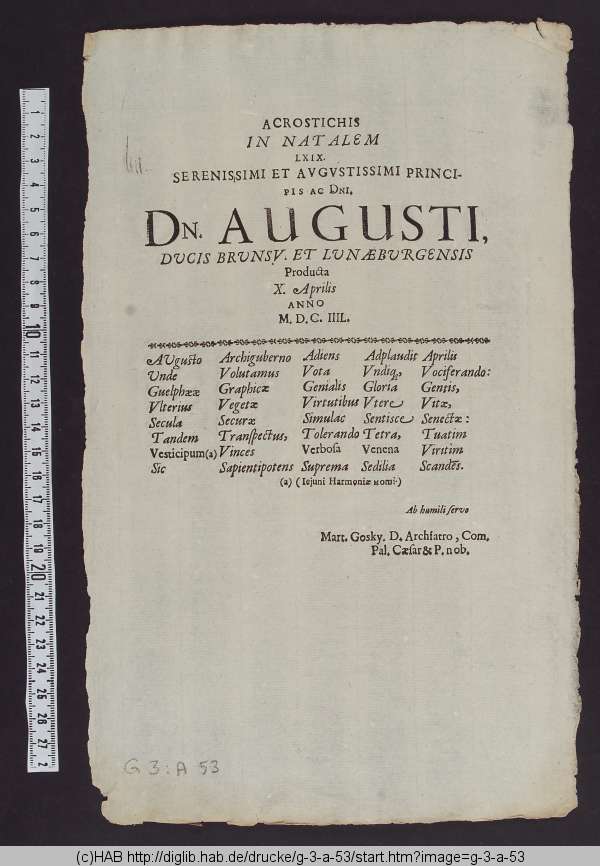 ACROSTICHIS
IN NATALEM
LXIX.
SERENISSIMI ET AVGVSTISSIMI PRINCI-
PIS AC DNI,
DN. AUGUSTI,
DVCIS BRVNSV. ET LVNÆBVRGENSIS
Producta
X. Aprilis
ANNO
M. D. C. IIIL.
AVgusto Archiguberno Adiens Adplaudit Aprilis
Vnde Volutamus Vota Vndiq, Vociferando:
Guelphææ Graphicæ Genialis Gloria Gentis,
Vlterius Vegetæ Virtutibus Vtere Vitæ,
Secula Securæ Simulac Sentisce Senectæ:
Tandem Transpectus, Tolerando Tetra, Tuatim
Vesticipum(a) Vinces Verbosa Venena Viritim
Sic Sapientipotens Suprema Sedilia Scandẽs.
(a) (Iejuni Harmoniæ nomi-)
Ab humili servo
Mart. Gosky. D. Archiatro, Com.
Pal. Cæsar & P. nob.
G 3:A 53
1 2 3 4 5 6 7 8 9 10 11 12 13 14 15 16 17 18 19 20 21 22 23 24 25 26 27 2
(c)HAB http://diglib.hab.de/drucke/g-3-a-53/start.htm?image=g-3-a-53